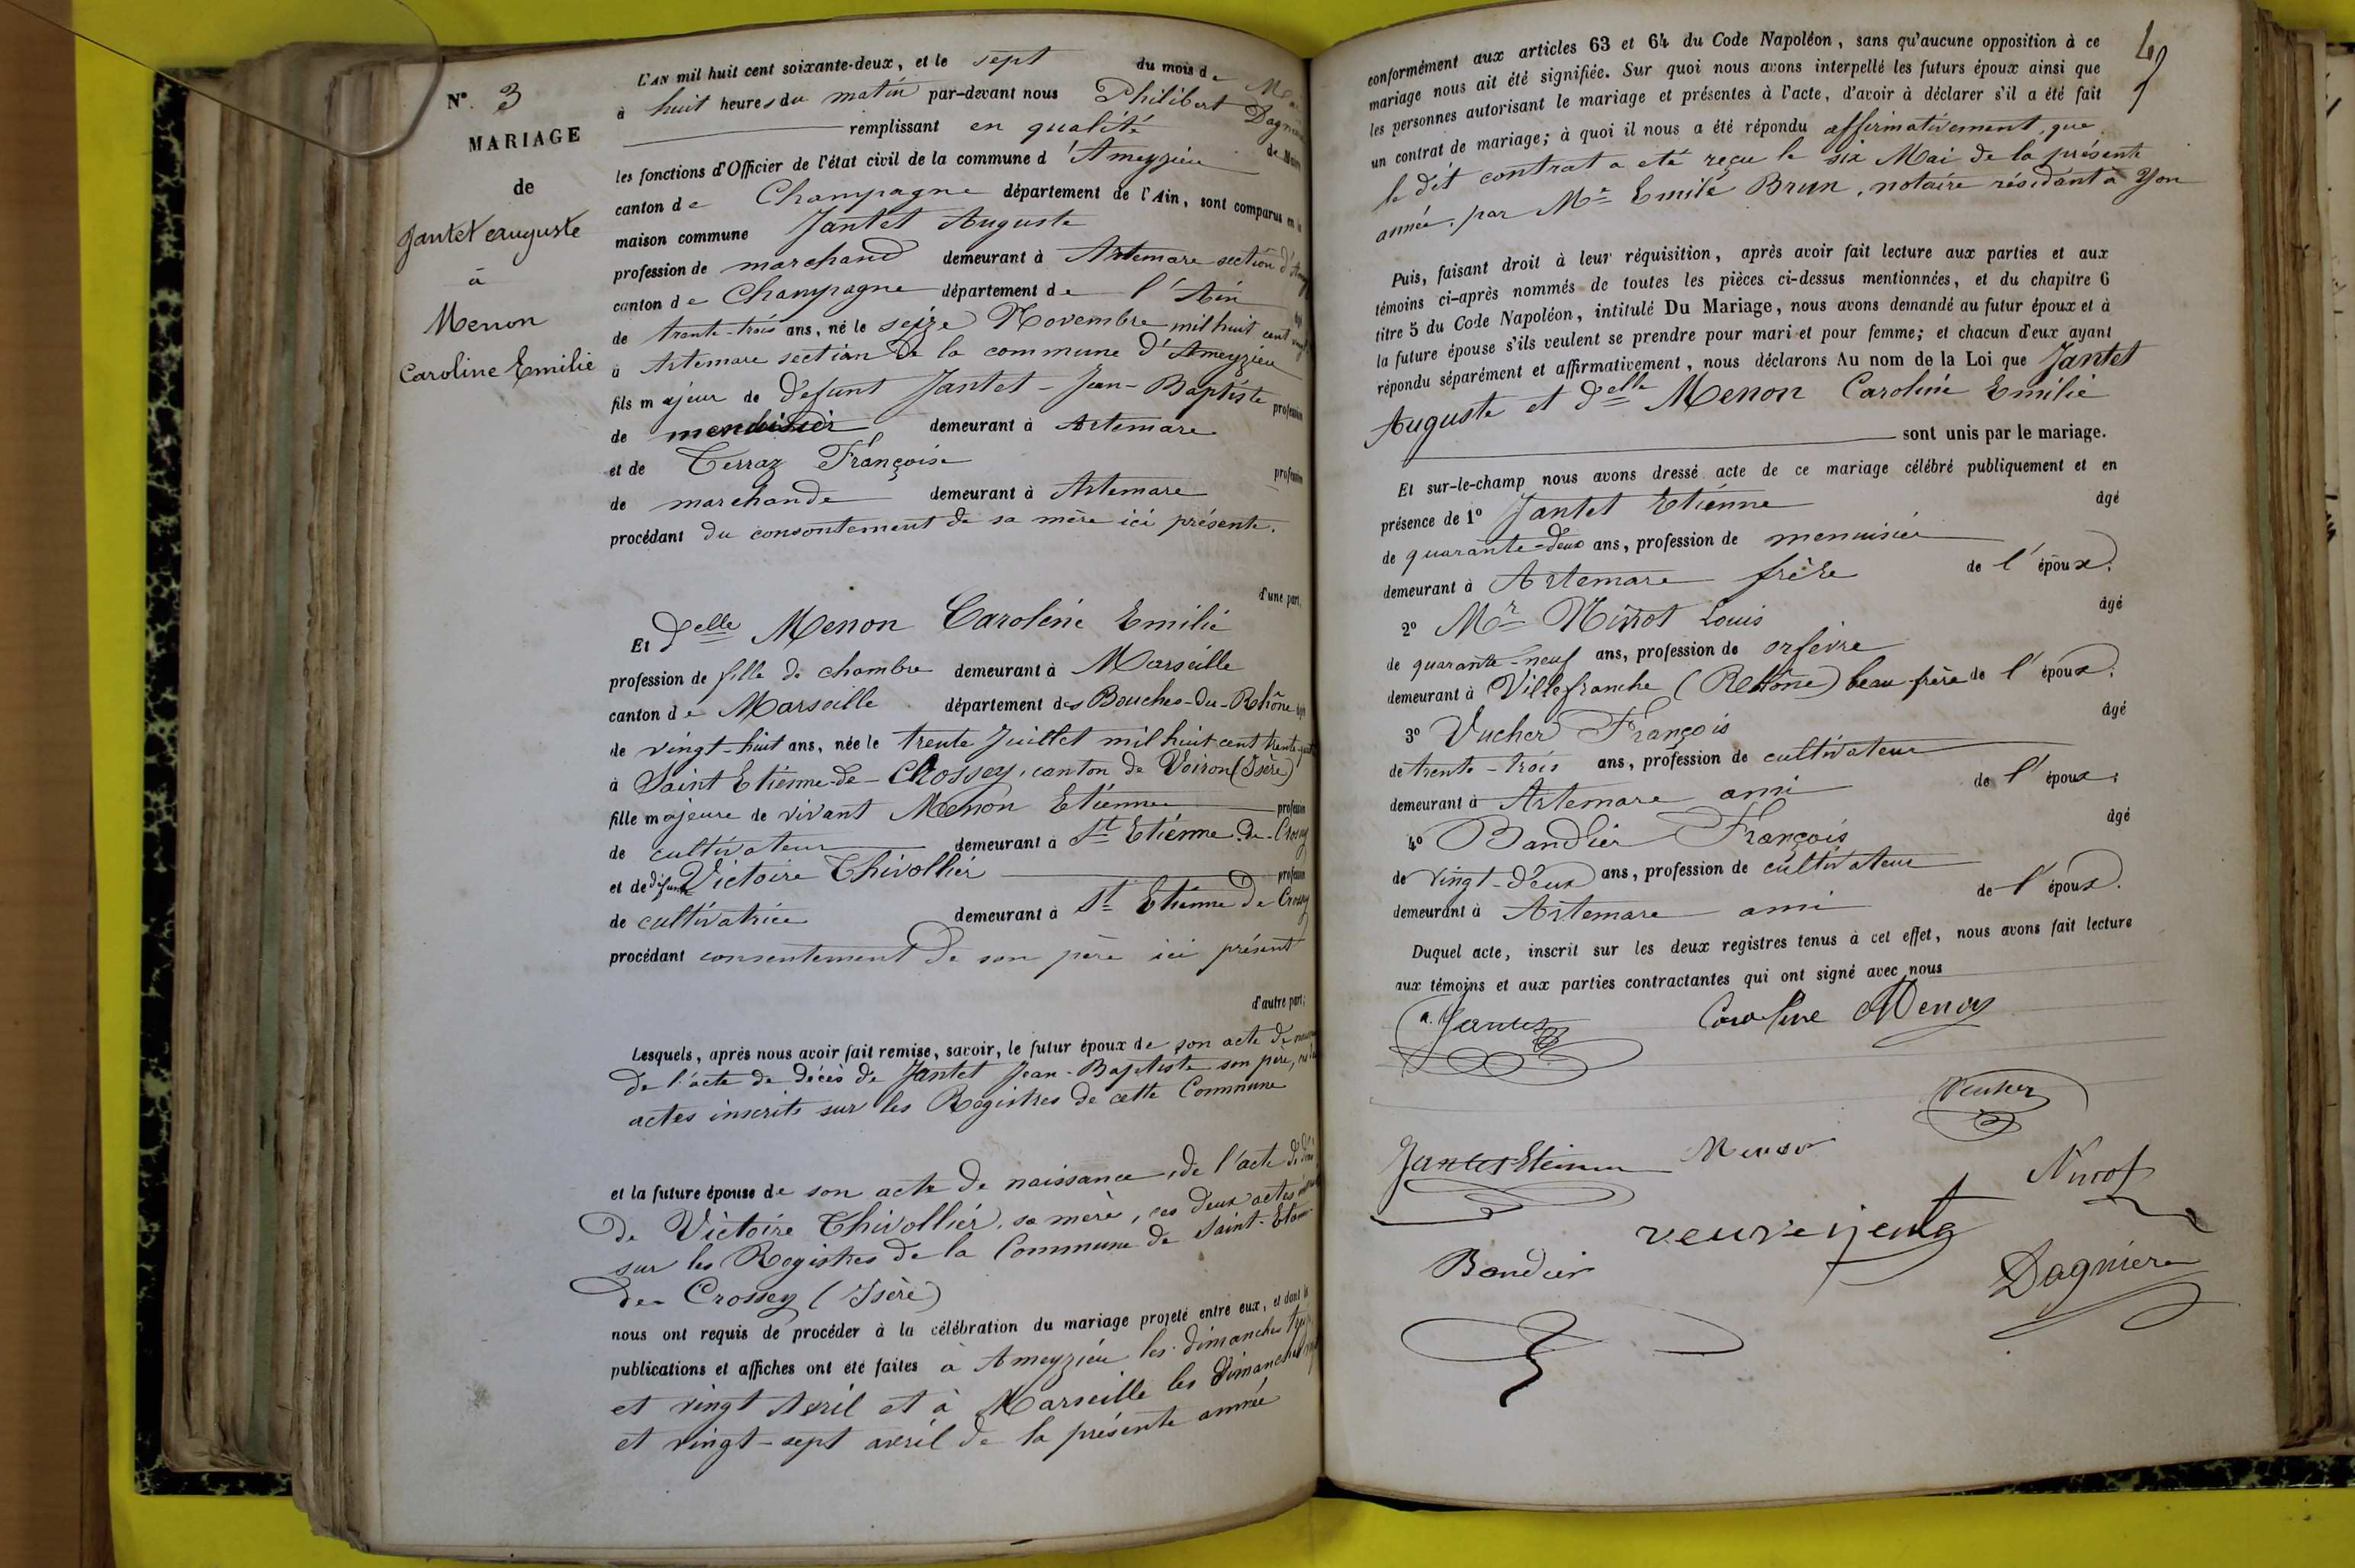 N° 3
MARIAGE
de
Jantet Auguste
à
Menon
Caroline Emilie
L'AN mil huit cent soixante-deux, et le sept du mois de
à huit heures du matin par-devant nous Philibert
remplissant en qualité de
les fonctions d'Officier de l'état civil de la commune d'Ameyzieu
canton de Champagne département de l'Ain, sont comparus en
maison commune Jantet Auguste
profession de marchand demeurant à Artemare section
canton de Champagne département de l'Ain
de trente-trois ans, né le seize Novembre mil huit cent
à Artemare section de la commune d'Ameyzieu
fils majeur de défunt Jantet-Jean-Baptiste profession
de menuisier demeurant à Artemare
et de Terraz Françoise profession
de marchande demeurant à Artemare
procédant du consentement de sa mère ici présente.
d'une part,
Et Delle Menon Caroline Emilie
profession de fille de chambre demeurant à Marseille
canton de Marseille département des Bouches-du-Rhône
de vingt-huit ans, née le trente Juillet mil huit cent trente
à Saint Etienne-de-Crossey, canton de Voiron (Isère)
fille majeure de vivant Menon Etienne profession
de cultivateur demeurant à St Etienne-de-Crossey
et de défunte Victoire Thivollier profession
de cultivatrice demeurant à St Etienne de Crossey
procédant consentement de son père ici présent
d'autre part;
Lesquels, après nous avoir fait remise, savoir, le futur époux de son acte de
de l'acte de décès de Jantet Jean-Baptiste son père,
actes inscrits sur les Registres de cette Commune
et la future épouse de son acte de naissance, de l'acte de
de Victoire Thivollier, sa mère, ces deux actes
sur les Registres de la Commune de Saint-Etienne
de Crossey (Isère)
nous ont requis de procéder à la célébration du mariage projeté entre eux, et dont les
publications et affiches ont été faites à Ameyzieu les dimanches
et vingt Avril et à Marseille les dimanches
et vingt-sept avril de la présente année
49
conformément aux articles 63 et 64 du Code Napoléon, sans qu'aucune opposition à ce
mariage nous ait été signifiée. Sur quoi nous avons interpellé les futurs époux ainsi que
les personnes autorisant le mariage et présentes à l'acte, d'avoir à déclarer s'il a été fait
un contrat de mariage; à quoi il nous a été répondu affirmativement, que
le dit contrat a été reçu le six Mai de la présente
année, par Me Emile Brun, notaire résidant à Yon
Puis, faisant droit à leur réquisition, après avoir fait lecture aux parties et aux
témoins ci-après nommés de toutes les pièces ci-dessus mentionnées, et du chapitre 6
titre 5 du Code Napoléon, intitulé Du Mariage, nous avons demandé au futur époux et à
la future épouse s'ils veulent se prendre pour mari et pour femme; et chacun d'eux ayant
répondu séparément et affirmativement, nous déclarons Au nom de la Loi que Jantet
Auguste et Delle Menon Caroline Emilie
sont unis par le mariage.
Et sur-le-champ nous avons dressé acte de ce mariage célébré publiquement et en
présence de 1° Jantet Etienne âgé
de quarante-deux ans, profession de menuisier
demeurant à Artemare frère de l'époux;
2° Mr Nivot Louis âgé
de quarante-neuf ans, profession de orfèvre
demeurant à Villefranche (Rhône) beau-frère de l'époux;
3° Vucher François âgé
de trente-trois ans, profession de cultivateur
demeurant à Artemare ami de l'époux;
4° Bandier François âgé
de vingt-deux ans, profession de cultivateur
demeurant à Artemare ami de l'époux.
Duquel acte, inscrit sur les deux registres tenus à cet effet, nous avons fait lecture
aux témoins et aux parties contractantes qui ont signé avec nous
a. Jantet Caroline Menon
Vucher
Jantet Etienne Menon
Nivot
veuve
Bandier Dagnière